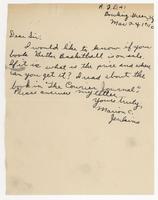 R. F. D. #1
Bowling Green, Ky.
Mar. 24, 19
Dear Sir:
I would like to know if your
book Better Basketball is on sale.
If it is what is the price and where
can you get it? I read about the
book in "The Courier Journal."
Please answer my letter.
Yours truly,
Marion C.
Jenkins